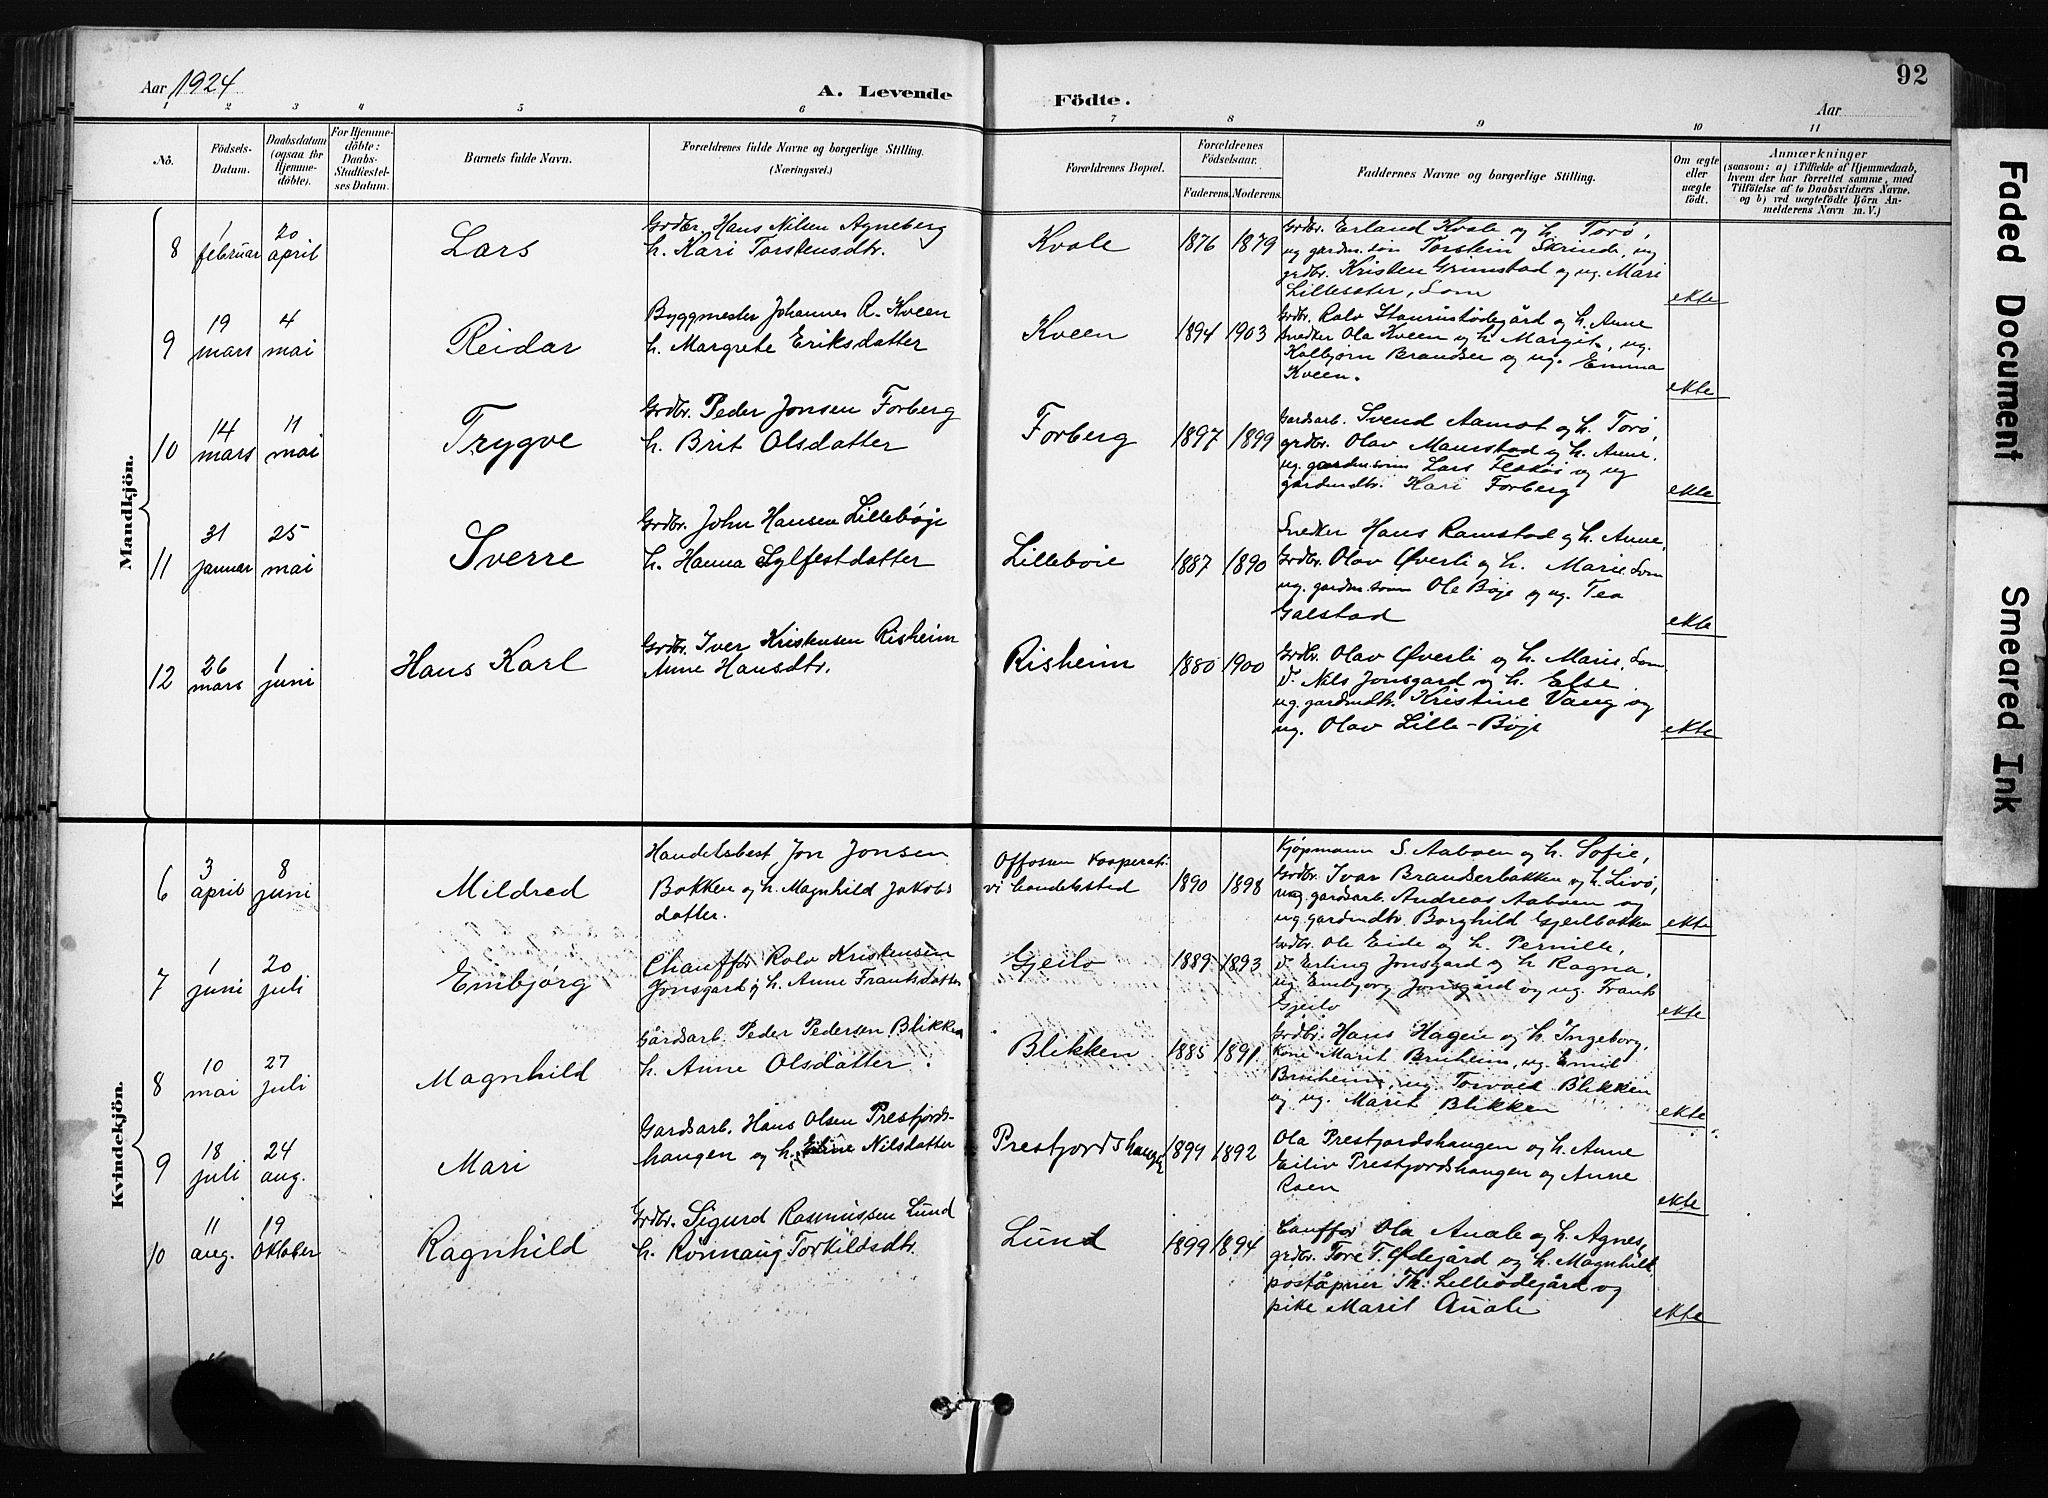 Aar 1924
A. Levende Födte.
Aar
92
1 2 3 4 5 6 7 8 9 10 11
No.
Födsels-Datum.
Daabsdatum (ogsaa for Hjemme-döbte).
For Hjemme-döbte: Daabs-Stadfæstel-ses Datum.
Barnets fulde Navn.
Forældrenes fulde Navne og borgerlige Stilling.
(Næringsvei.)
Forældrenes Bopæl.
Forældrenes Födselsaar.
Faderens. Moderens.
Faddernes Navne og borgerlige Stilling.
Om ægte eller uægte födt.
Anmærkninger
(saasom: a) i Tilfælde af Hjemmedaab, hvem der har forrettet samme, med Tilföielse af to Daabsvidners Navne, og b) ved uægtefödte Börn An-melderens Navn m. V.)
Mandkjön.
8 1 februar 20 april Lars
Grdbr. Hans Nilsen Agneberg
h. Kari Torstensdtr.
Kvale 1876 1879
Grdbr. Erland Kvale og h. Torø,
ug gardm. søn Torstein Skrinde, ug
grdbr. Kristen Grimstad og ug. Mari
Lillesæter, Lom
ekte
9 19 mars 4 mai Reidar
Byggmester Johannes R. Kveen
h. Margrete Eriksdatter
Kveen 1894 1903
Grdbr. Rolv Staurustødegård og h. Anne
Snedker Ola Kveen og h. Margit, ug.
Kolbjørn Brandser og ug. Emma
Kveen.
ekte
10 14 mars 11 mai Trygve
Grdbr. Peder Jonsen Forberg
h. Brit Olsdatter
Forberg 1897 1899
Gardsarb. Svend Aamot og h. Torø,
grdbr. Olav Mamstad og h. Anne,
ug. gardm. søn Lars Flækøi og ug
gardmdtr. Kari Forberg
ekte
11 31 januar 25 mai Sverre
Grdbr. John Hansen Lillebøje
h. Hanna Sylfestdatter
Lillebøie 1887 1890
Snedker Hans Ramstad og h. Anne,
Grdbr. Olav Øverli og h. Marie, Lom
ug. gardm. sønn Ole Bøje og ug. Tea
Galstad
ekte
12 26 mars 1 juni Hans Karl
Grdbr. Iver Kristensen Risheim
Anne Hansdtr.
Risheim 1880 1900
Grdbr. Olav Øverli og h. Marie, Lom
d. Nils Jonsgard og h. Else
ug. gardmdtr. Kristine Vang og
ug. Olav Lille-Bøje
ekte
Kvindekjön.
6 3 april 8 juni Mildred
Handelsbest Jon Jonsen
Bakken og h. Magnhild Jakobs
datter.
Offossen kooperati-
vi handelsted
1890 1898
Kjøpmann S. Aaboen og h. Sofie,
Grdbr. Ivar Brandserbakken og h. Livø,
ug. gardsarb. Andreas Aaboen og
ug. gardmdtr. Borghild Gjeilbakken
ekte
7 1 juni 20 juli Embjørg
Chauffør Rolv Kristensen
Jonsgard og h. Anne Franksdatter
Gjeilo 1889 1893
Grdbr. Ole Eide og h. Pernille,
d. Erling Jonsgard og h Ragna,
ug Embjørg Jonsgard og ug. Frank
Gjeilo
ekte
8 10 mai 27 juli Magnhild
Gårdsarb. Peder Pedersen Blikken
h. Anne Olsdatter.
Blikken 1885 1891.
Grdbr. Hans Hagen og h. Ingeborg,
kone Marit Bruheim, ug. Emil
Bruheim, ug. Torvald Blikken
og ug. Marit Blikken
ekte
9 18 juli 24 aug. Mari
Gardsarb. Hans Olsen Prestfjords-
haugen og h. Eline Nilsdatter
Prestfjordshaugen 1894 1892
Ola Prestfjordshaugen og h. Anne
Eiliv Prestfjordshaugen og Anne
Roen
ekte
10 11 aug. 19 oktober Ragnhild
Grdbr. Sigurd Rasmussen Lund
h. Rønnaug Torkildsdtr.
Lund 1899 1894
Cauffør Ola Auale og h. Agnes,
grdbr. Tore T. Ødegård og h. Magnhild,
poståpner Th. Lilleødegård og
pike Marit Auale
ekte
Faded Document
Smeared Ink